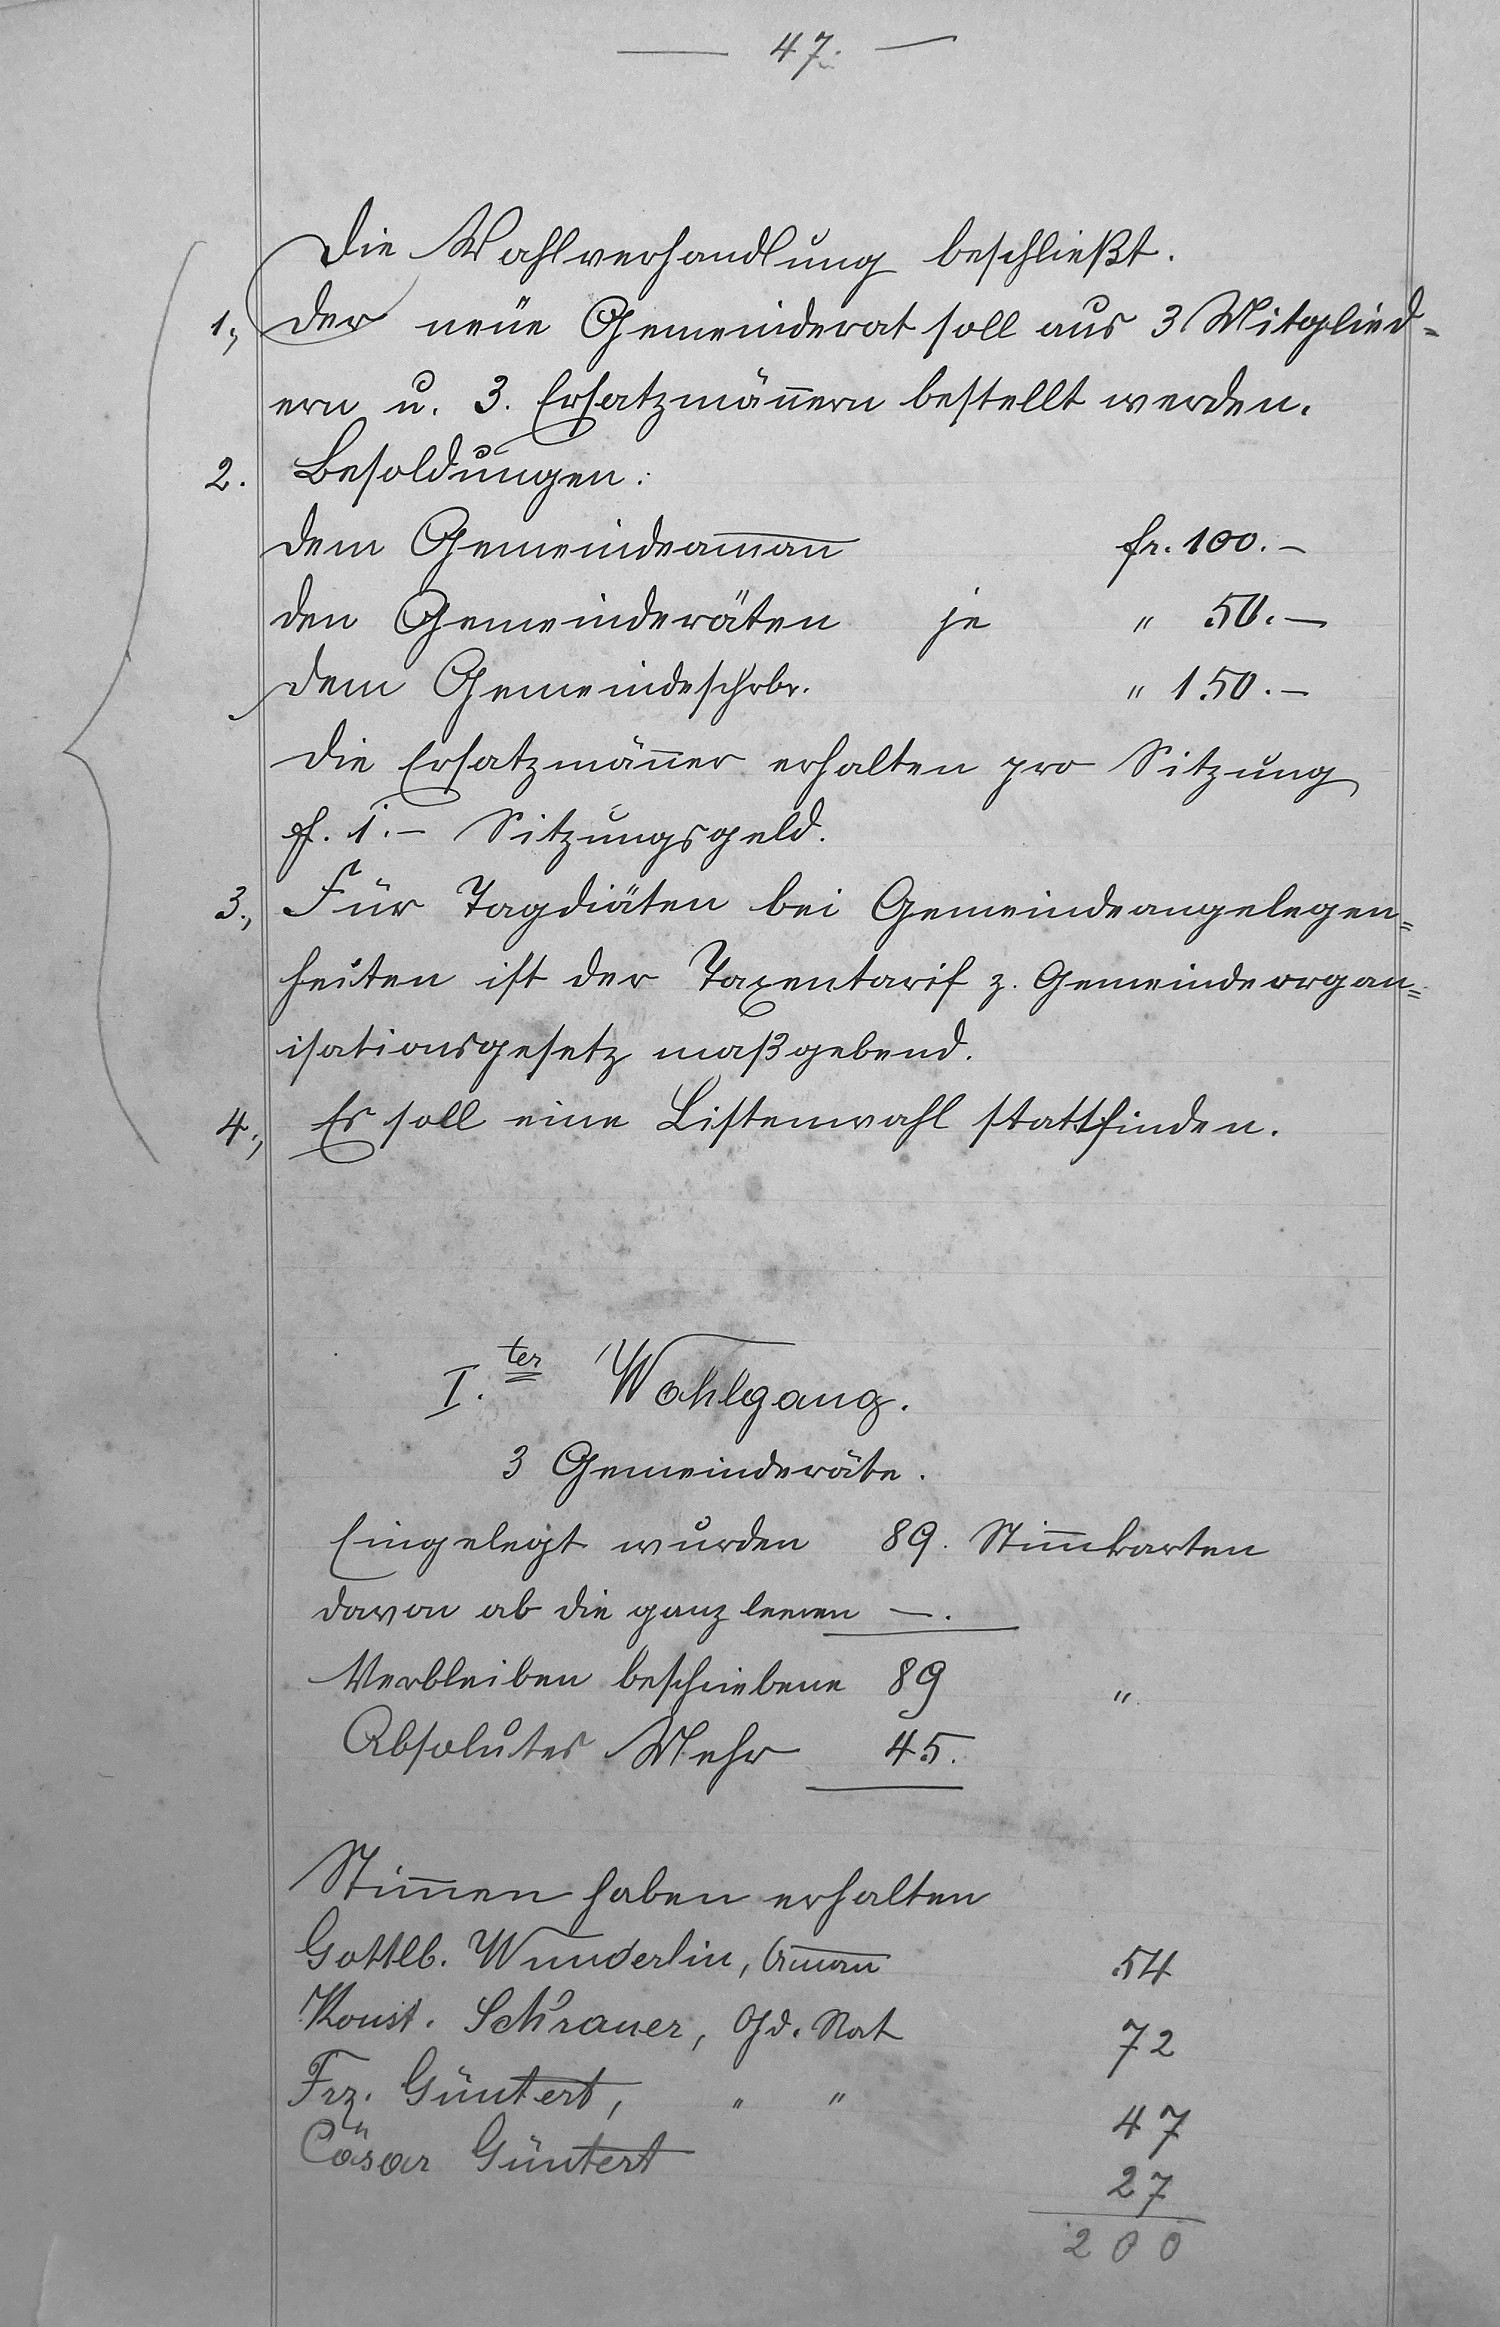 — 47. —
Die Wahlverhandlung beschließt.
1., Der neue Gemeinderat soll aus 3 Mitglied-
ern u. 3. Ersatzmänern bestellt werden.
2. Besoldungen:
dem Gemeindeaman fr. 100.–
den Gemeinderäten je " 50.–
dem Gemeindeschrbr. " 150.–
Die Ersatzmäner erhalten pro Sitzung
f. 1.– Sitzungsgeld.
3., Für Tagdiäten bei Gemeindeangelegen=
heiten ist der Taxentarif z. Gemeindeorgan=
isationsgesetz maßgebend.
4., Es soll eine Listenwahl stattfinden.
I. ter Wahlgang.
3 Gemeinderäte.
Eingelegt wurden 89. Stimkarten
davon ab die ganz leeren —.
Verbleiben beschriebene 89 "
Absolutes Mehr 45.
Stimen haben erhalten
Gottlb. Wunderlin, Aman 54
Konst. Schrauer, Gd. Rat 72
Frz. Güntert, " " 47
Cäsar Güntert 27
200